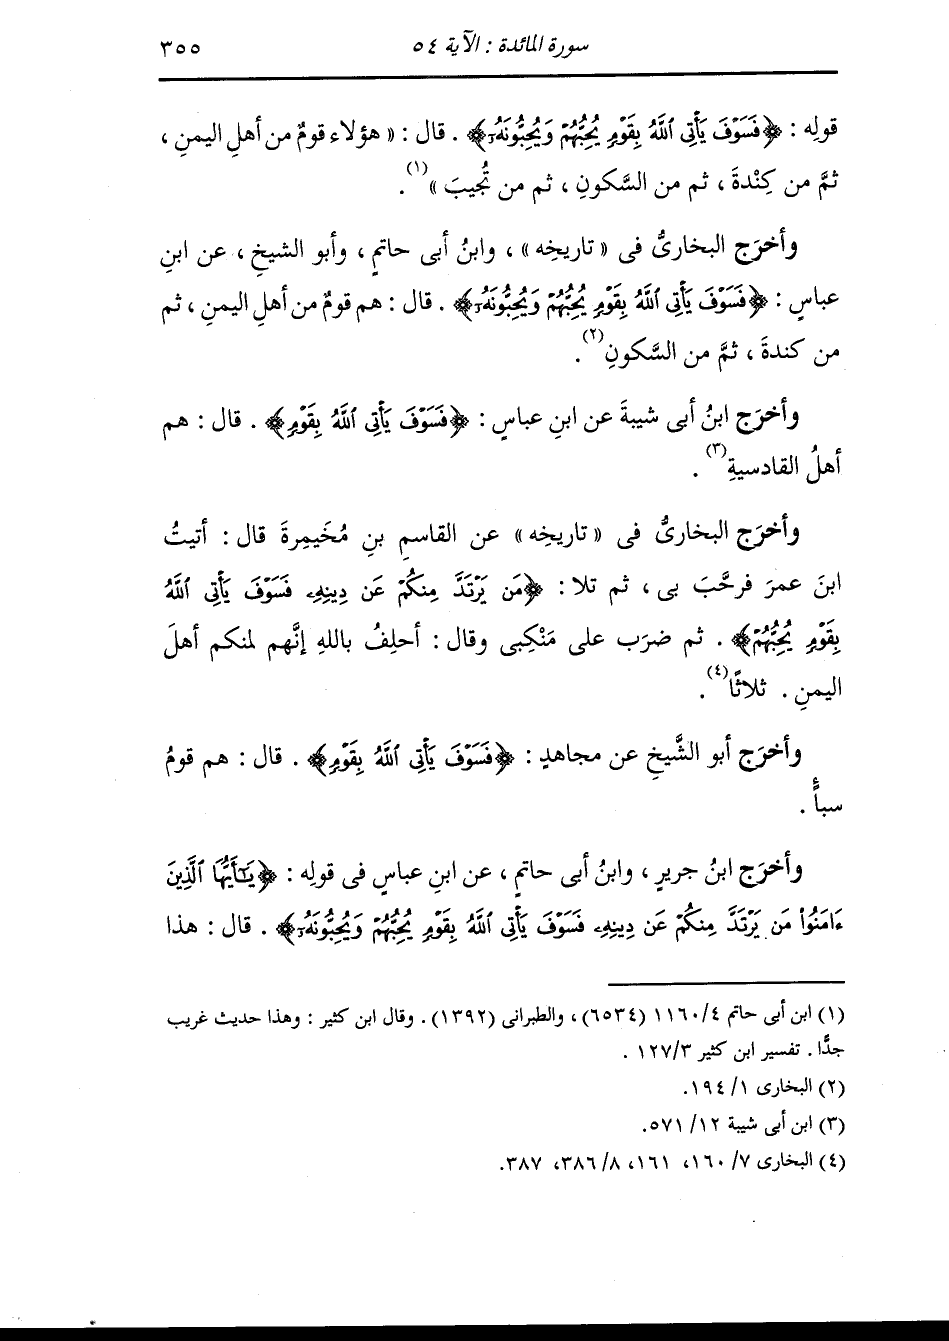 سورة المائدة : الآية ٥٤ ٣٥٥
قولِه : ﴿فَسَوْفَ يَأْتِى ٱللَّهُ بِقَوْمٍ يُحِبُّهُمْ وَيُحِبُّونَهُۥ﴾ . قال : « هؤلاء قومٌ من أهلِ اليمنِ ،
ثمَّ من كِنْدةَ ، ثم من السَّكونِ ، ثم من تُجيبَ »(١).
وأخرَج البخارىُّ فى « تاريخِه » ، وابنُ أبى حاتمٍ ، وأبو الشيخِ ، عن ابنِ
عباسٍ : ﴿فَسَوْفَ يَأْتِى ٱللَّهُ بِقَوْمٍ يُحِبُّهُمْ وَيُحِبُّونَهُۥ﴾ . قال : هم قومٌ من أهلِ اليمنِ ، ثم
من كندةَ ، ثمَّ من السَّكونِ(٢).
وأخرَج ابنُ أبى شيبةَ عن ابنِ عباسٍ : ﴿فَسَوْفَ يَأْتِى ٱللَّهُ بِقَوْمٍ﴾ . قال : هم
أهلُ القادسيةِ(٣) .
وأخرَج البخارىُّ فى « تاريخِه » عن القاسمِ بنِ مُخَيمِرةَ قال : أتيتُ
ابنَ عمرَ فرحَّبَ بى ، ثم تلا : ﴿مَن يَرْتَدَّ مِنكُمْ عَن دِينِهِۦ فَسَوْفَ يَأْتِى ٱللَّهُ
بِقَوْمٍ يُحِبُّهُمْ﴾ . ثم ضرَب على مَنْكِبى وقال : أحلِفُ باللهِ إنَّهم لمنكم أهلَ
اليمنِ . ثلاثًا(٤).
وأخرَج أبو الشَّيخِ عن مجاهدٍ : ﴿فَسَوْفَ يَأْتِى ٱللَّهُ بِقَوْمٍ﴾ . قال : هم قومُ
سبأٍ .
وأخرَج ابنُ جريرٍ ، وابنُ أبى حاتمٍ ، عن ابنِ عباسٍ فى قولِه : ﴿يَٰٓأَيُّهَا ٱلَّذِينَ
ءَامَنُوا۟ مَن يَرْتَدَّ مِنكُمْ عَن دِينِهِۦ فَسَوْفَ يَأْتِى ٱللَّهُ بِقَوْمٍ يُحِبُّهُمْ وَيُحِبُّونَهُۥ﴾ . قال : هذا
(١) ابن أبى حاتم ٤/١١٦٠ (٦٥٣٤) ، والطبرانى (١٣٩٢) . وقال ابن كثير : وهذا حديث غريب
جدًّا . تفسير ابن كثير ٣/١٢٧ .
(٢) البخارى ١/ ١٩٤.
(٣) ابن أبى شيبة ١٢/ ٥٧١.
(٤) البخارى ٧/ ١٦٠، ١٦١، ٨/ ٣٨٦، ٣٨٧.